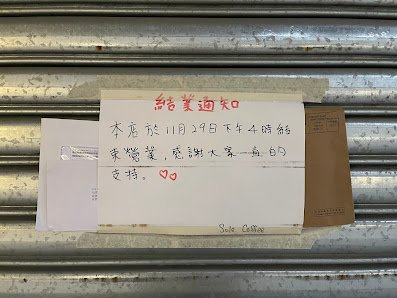 結業通知
本店於11月29日下午4時結
束營業，感謝大家一直的
支持。♡♡
Sole Coffee